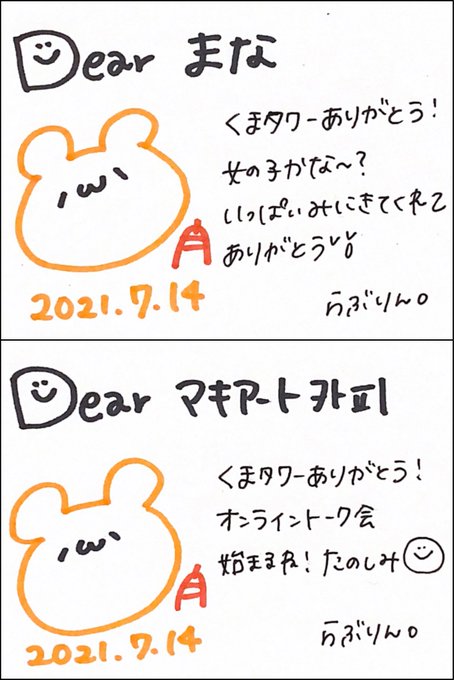 Dear まな
くまタワーありがとう!
女の子かな〜?
いっぱいみにきてくれて
ありがとう
2021.7.14
らぶりん。
Dear マキアート카피
くまタワーありがとう!
オンライントーク会
始まるね! たのしみ
2021.7.14
らぶりん。